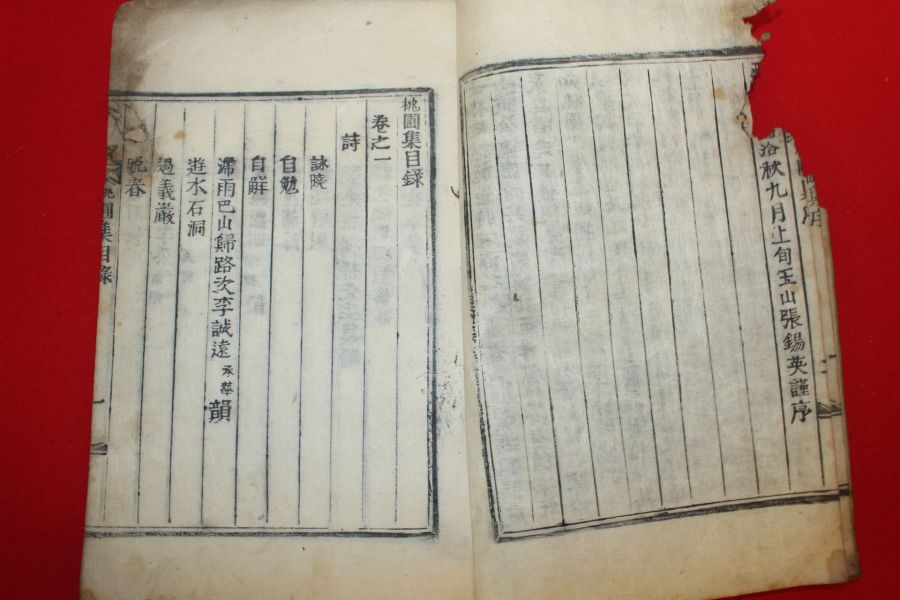 集序
秋九月上旬玉山張錫英謹序
桃園集目錄
卷之一
詩
詠曉
自勉
自解
滯雨巴山歸路次李誠遠承韻
遊水石洞
過義巖
晩春
桃園集目錄
一